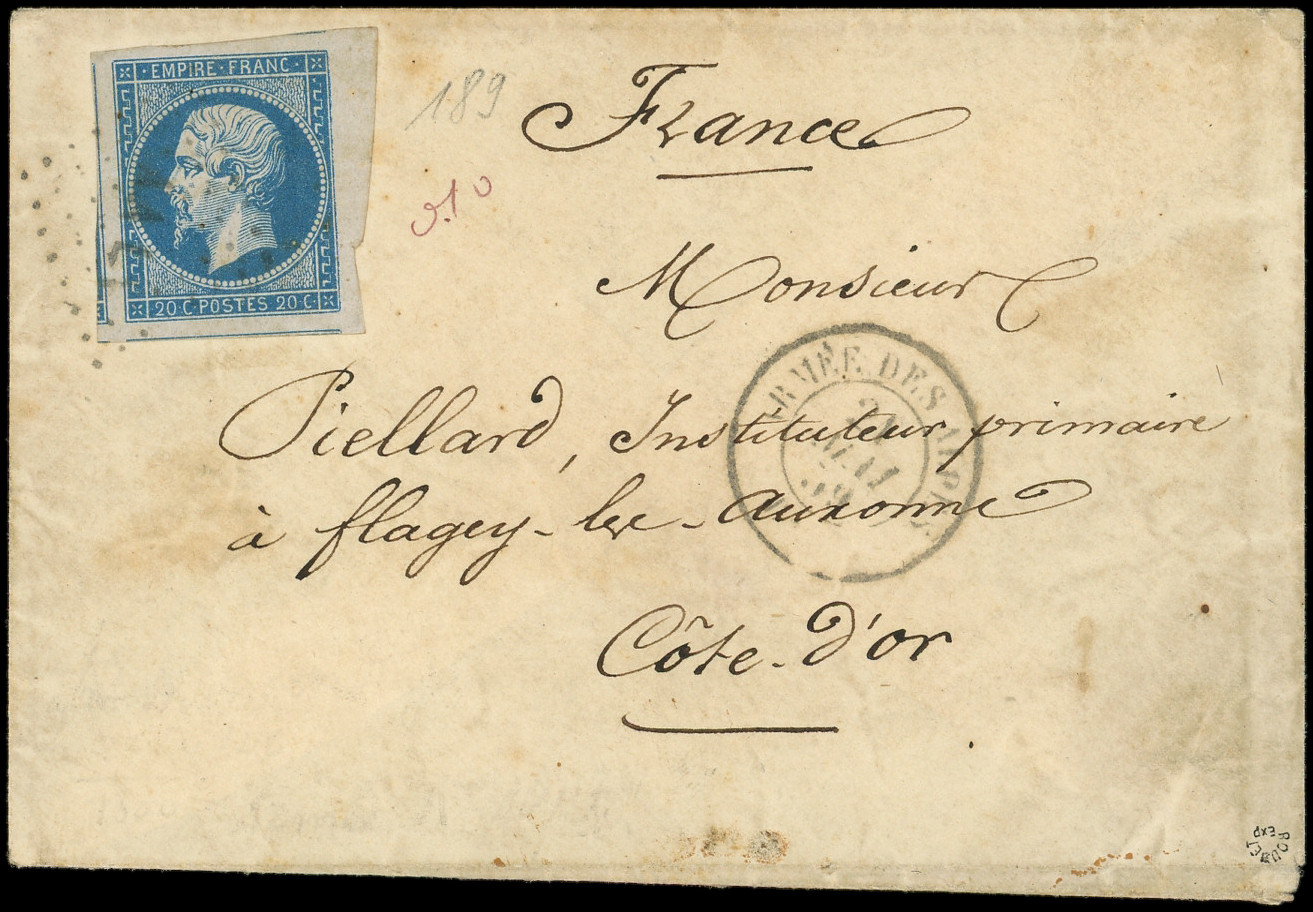 EMPIRE · FRANC ·
20 · C · POSTES 20 · C ·
189
France
Monsieur
Piellard, Instituteur primaire
à flagey-lez-auxonne
Côte-d'or
ARMÉE DES ALPES
MAI
ROQUET
EXP